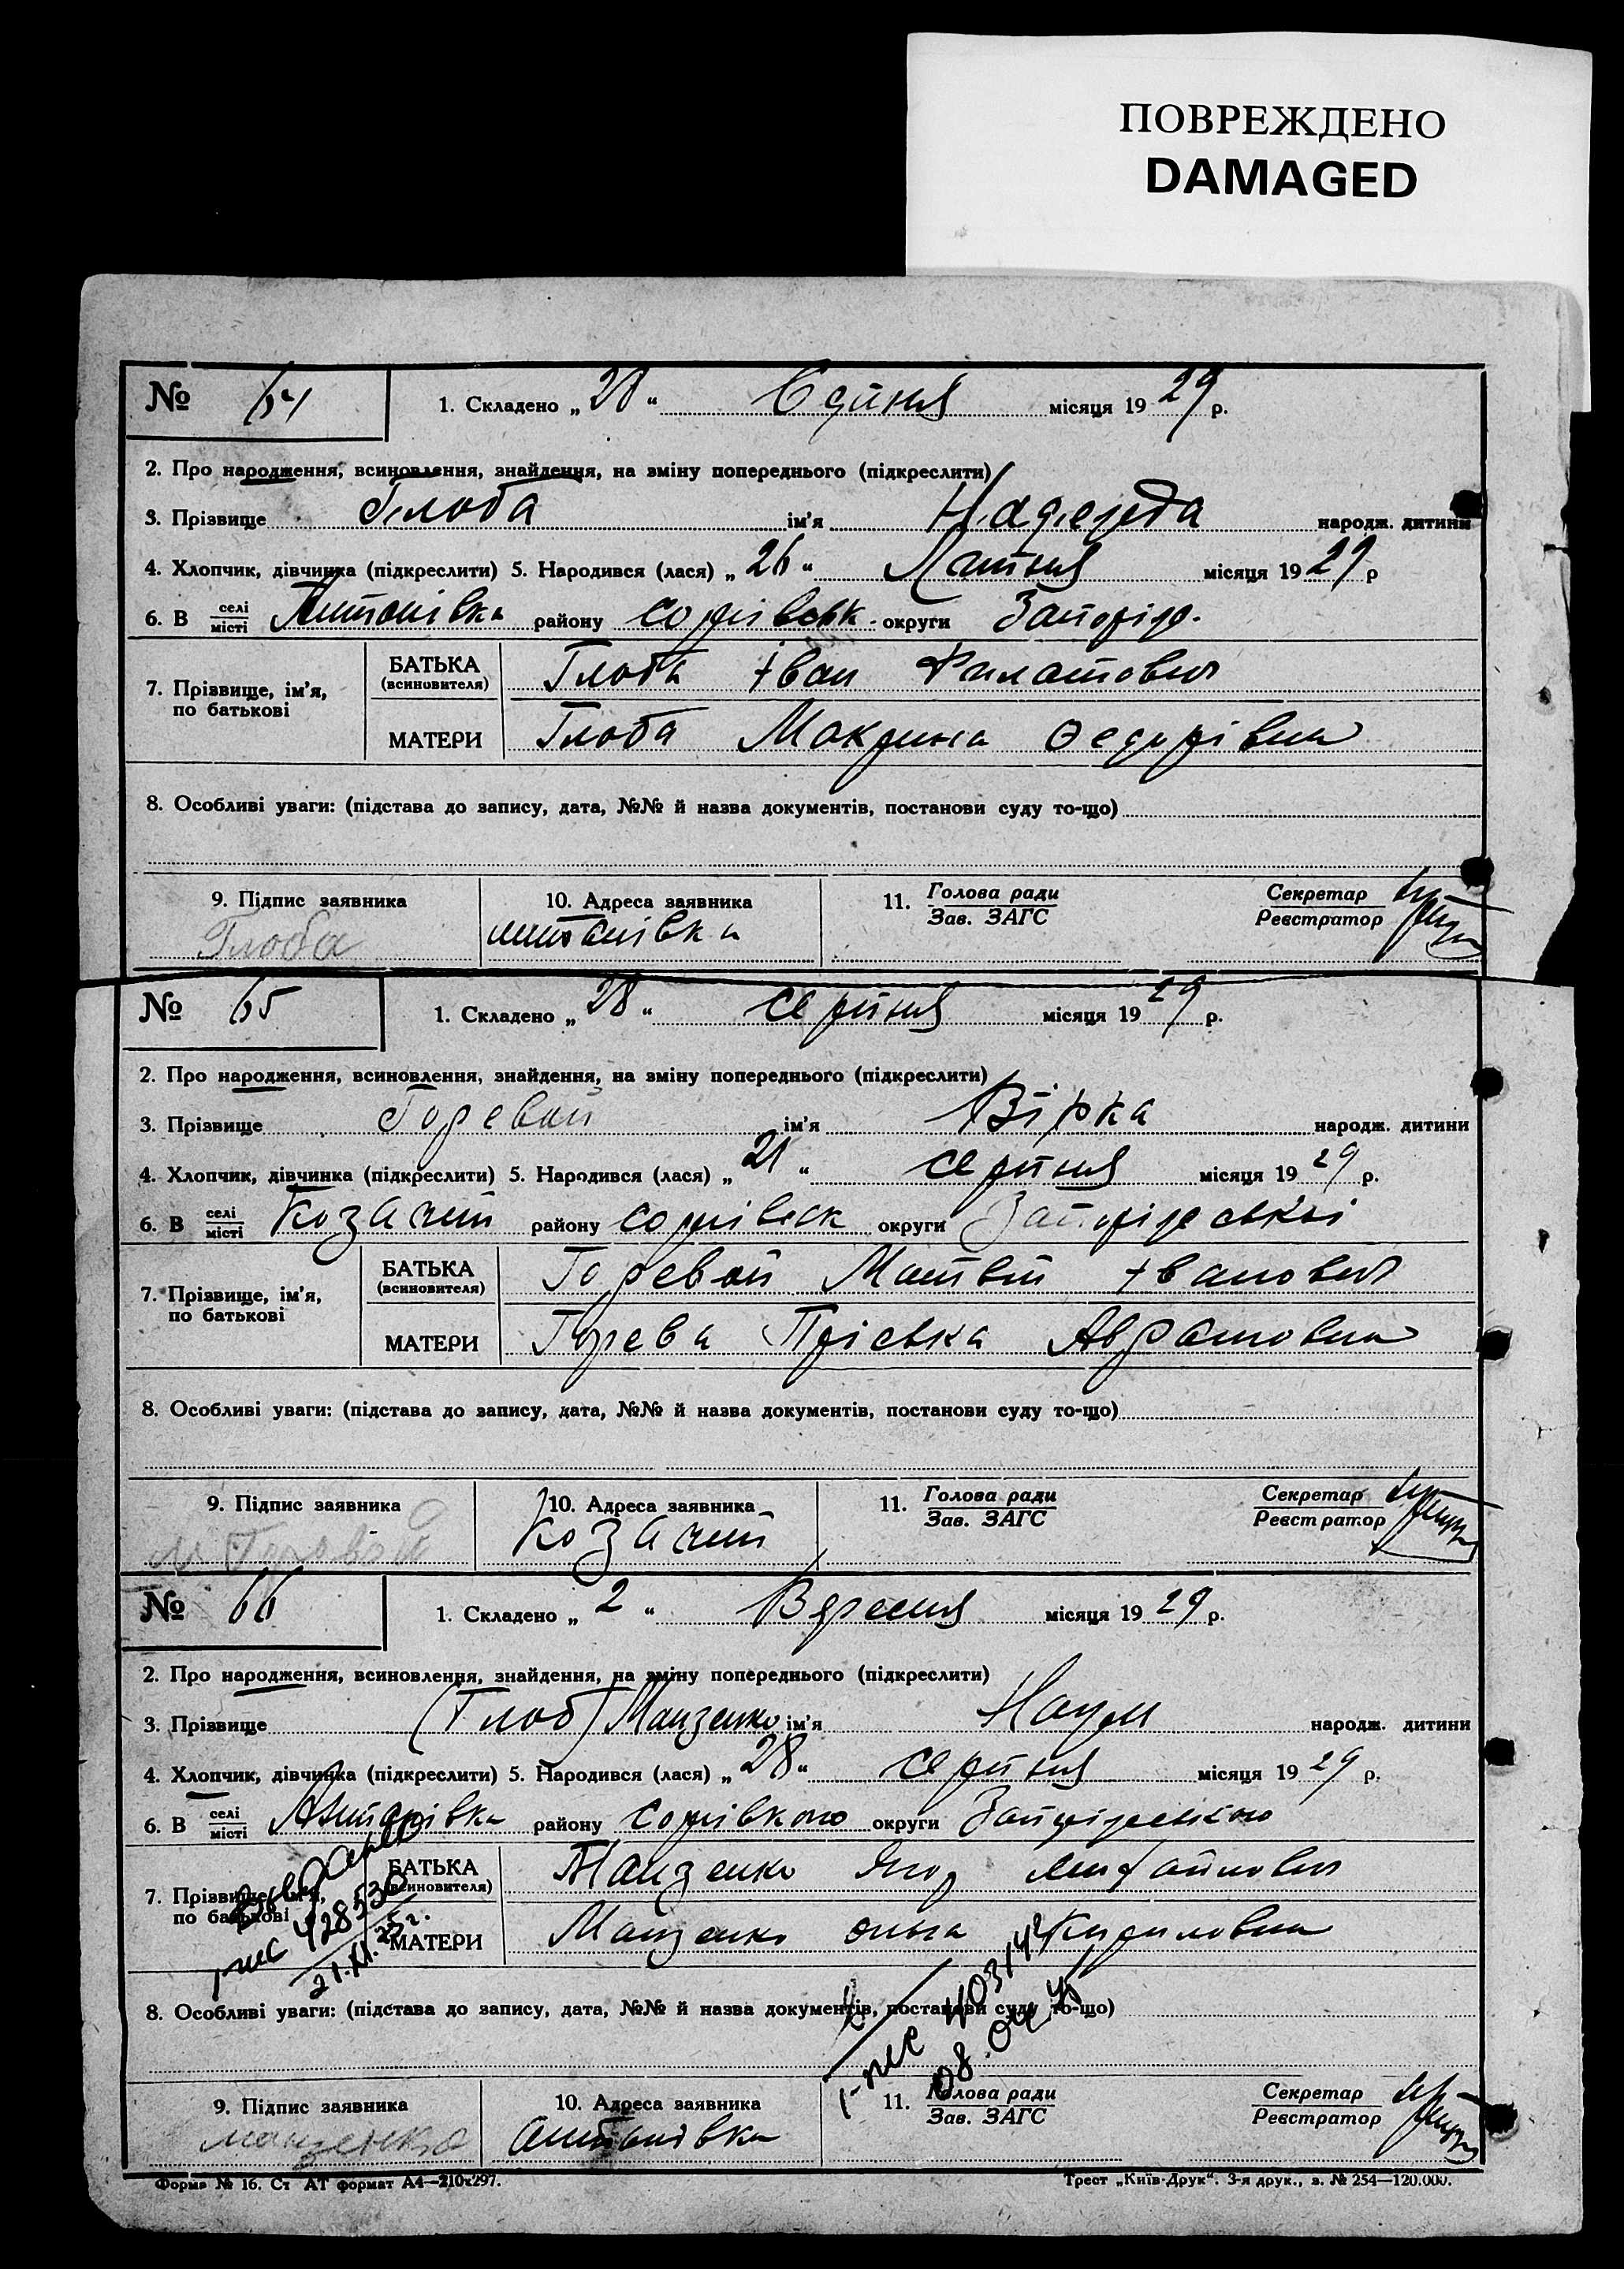 ПОВРЕЖДЕНО
DAMAGED
№ 64 1. Складено „ 28 “ місяця 19 29 р.
2. Про народження, всиновлення, знайдення, на зміну попереднього (підкреслити)
3. Прізвище Глоба ім'я Надежда народж. дитини
4. Хлопчик, дівчинка (підкреслити) 5. Народився (лася) „ 26 “ місяця 19 29 р
6. В селі/місті Антонівка району округи Запоріз.
7. Прізвище, ім'я, по батькові
БАТЬКА (всиновителя) Глоба Іван Филатович
МАТЕРИ Глоба Макрина Федорівна
8. Особливі уваги: (підстава до запису, дата, №№ й назва документів, постанови суду то-що)
9. Підпис заявника 10. Адреса заявника 11. Голова ради/Зав. ЗАГС Секретар/Реєстратор
Глоба Антонівка
№ 65 1. Складено „ 28 “ серпня місяця 19 29 р.
2. Про народження, всиновлення, знайдення, на зміну попереднього (підкреслити)
3. Прізвище Горевой ім'я Вірка народж. дитини
4. Хлопчик, дівчинка (підкреслити) 5. Народився (лася) „ 21 “ серпня місяця 19 29 р.
6. В селі/місті Козачий району округи Запорізської
7. Прізвище, ім'я, по батькові
БАТЬКА (всиновителя) Горевой Матвій Іванович
МАТЕРИ Горева Пріська Аврамовна
8. Особливі уваги: (підстава до запису, дата, №№ й назва документів, постанови суду то-що)
9. Підпис заявника 10. Адреса заявника 11. Голова ради/Зав. ЗАГС Секретар/Реєстратор
М Горевой Козачий
№ 66 1. Складено „ 2 “ Вересня місяця 19 29 р.
2. Про народження, всиновлення, знайдення, на зміну попереднього (підкреслити)
3. Прізвище (Глоб) Манзенко ім'я Наум народж. дитини
4. Хлопчик, дівчинка (підкреслити) 5. Народився (лася) „ 28 “ серпня місяця 19 29 р.
6. В селі/місті Антонівка району округи Запорізського
7. Прізвище, ім'я, по батькові
БАТЬКА (всиновителя) Манзенко
МАТЕРИ Манзенко Ольга Кириловна
428530
8. Особливі уваги: (підстава до запису, дата, №№ й назва документів, постанови суду то-що)
9. Підпис заявника 10. Адреса заявника 11. Голова ради/Зав. ЗАГС Секретар/Реєстратор
Манзенко Антонівка
Форма № 16. Ст АТ формат А4—210х297. Трест „Київ-Друк“. 3-я друк., з. № 254—120.000.